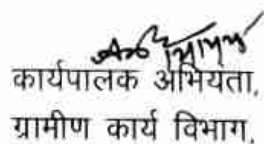 कार्यपालक अभियता,
ग्रामीण कार्य विभाग,